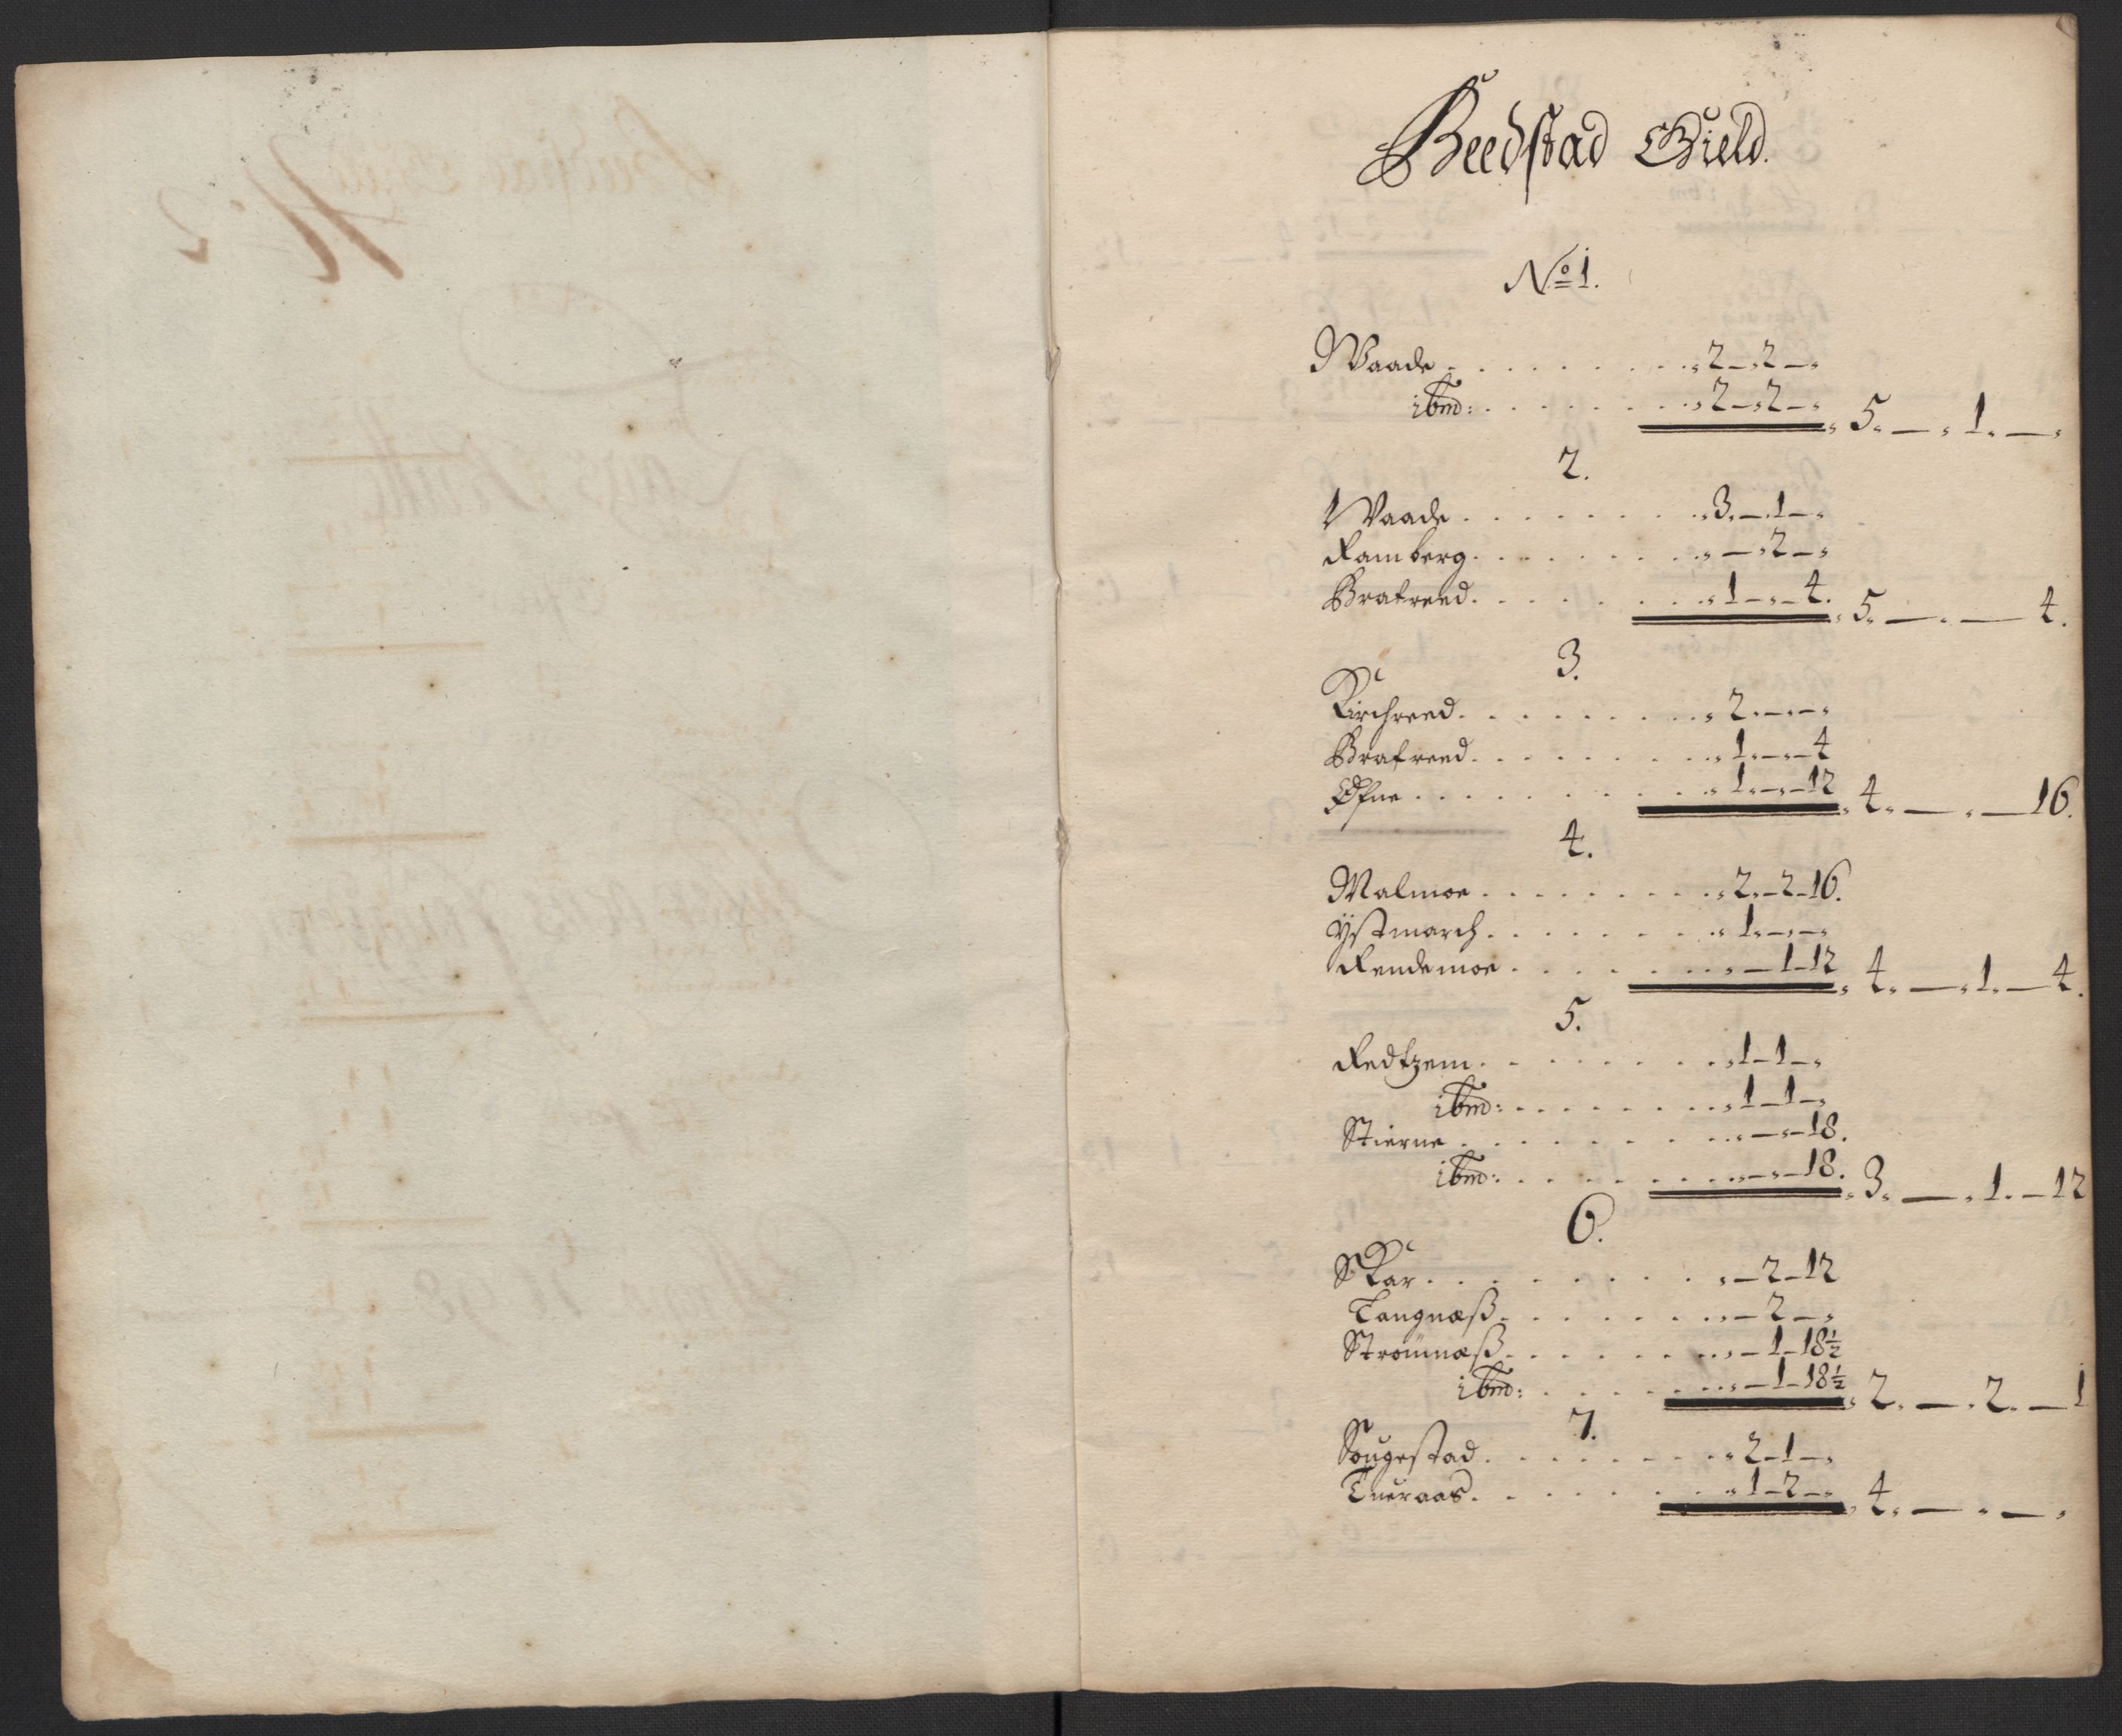 Beedstad Gield.
No 1.
Waade . . . . . . . . . 2 – 2 – ,
ibm: . . . . . . . 2 – 2 – , 5. — . 1. — ,
2.
Waade . . . . . . . . 3. – 1 – ,
Ramberg . . . . . . . , – 2 – ,
Brafreed . . . . . . . . 1 – , – 4. 5. — . — 4.
3.
Kirchreed . . . . . . . . 2. – , – ,
Brafreed . . . . . . . . 1. – , – 4
Øfne . . . . . . . . . 1. – , – 12 4. — . — 16.
4.
Malmoe . . . . . . . . . 2. – 2 – 16.
Ystmarch . . . . . . . . 1. – , – ,
Rendemoe . . . . . . . , – 1 – 12 4. — . 1. — 4.
5.
Redtzem . . . . . . . . 1 – 1 – ,
ibm: . . . . . . . . 1 – 1 – ,
Stierne . . . . . . . . , – , – 18.
ibm: . . . . . . . . , – , – 18. 3. — . 1. – 12
6.
Skar . . . . . . . . , – 2 – 12
Tangnæß . . . . . . . , – 2 – ,
Strømnæß . . . . . . . , – 1 – 18½
ibm: . . . . . . . , – 1 – 18½ 2. — . 2. — 1
7.
Sougestad . . . . . . . . 2 – 1 – ,
Tueraas . . . . . . . . 1 – 2 – , 4. — . — ,